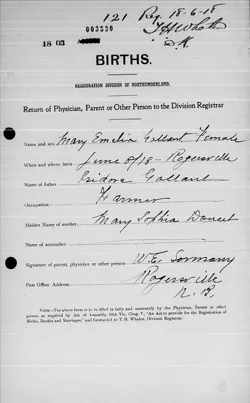 121 Reg. 18-6-18
003530
T H Whalen
18 03
D.R.
BIRTHS.
REGISTRATION DIVISION OF NORTHUMBERLAND.
Return of Physician, Parent or Other Person to the Division Registrar
Name and sex Mary Emelia Gallant Female
When and where born June 8/18 - Rogersville
Name of father Isidore Gallant
Occupation Farmer
Maiden Name of Mother Mary Sophia Doucet
Name of accoucheur
Signature of parent, physician or other person W. E. Sormany
Post Office Address Rogersville
N. B.
NOTE.—The above form is to be filled in fully and accurately by the Physician, Parent or other
person as required by Act of Assembly, 50th Vic, Chap. V, "An Act to provide for the Registration of
Births, Deaths and Marriages," and forwarded to T. H. Whalen, Division Registrar.